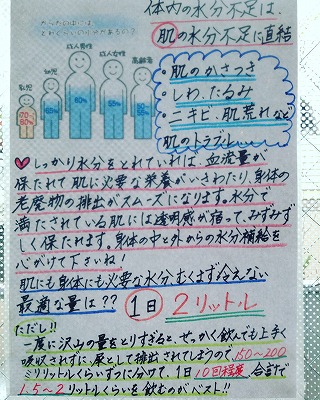 からだの中には
どれくらいの水分があるの？
体内の水分不足は、
肌の水分不足に直結
乳児
幼児
成人男性
成人女性
高齢者
60%
・肌のかさつき
・しわ、たるみ
・ニキビ、肌荒れなど
肌のトラブル
しっかり水分をとれていれば、血流量が
保たれて肌に必要な栄養がいきわたり、身体の
老廃物の排出がスムーズになります。水分で
満たされている肌には透明感が宿って、みずみず
しく保たれます。身体の中と外からの水分補給を
心がけて下さいね！
肌にも身体にも必要な水分、むくまず冷えない
最適な量は？？ 1日 2リットル
ただし!!
一度に沢山の量をとりすぎると、せっかく飲んでも上手く
吸収されずに、尿として排出されてしまうので、150〜200
ミリリットルくらいずつに分けて、1日10回程度、合計で
1.5〜2リットルくらいを飲むのがベスト!!